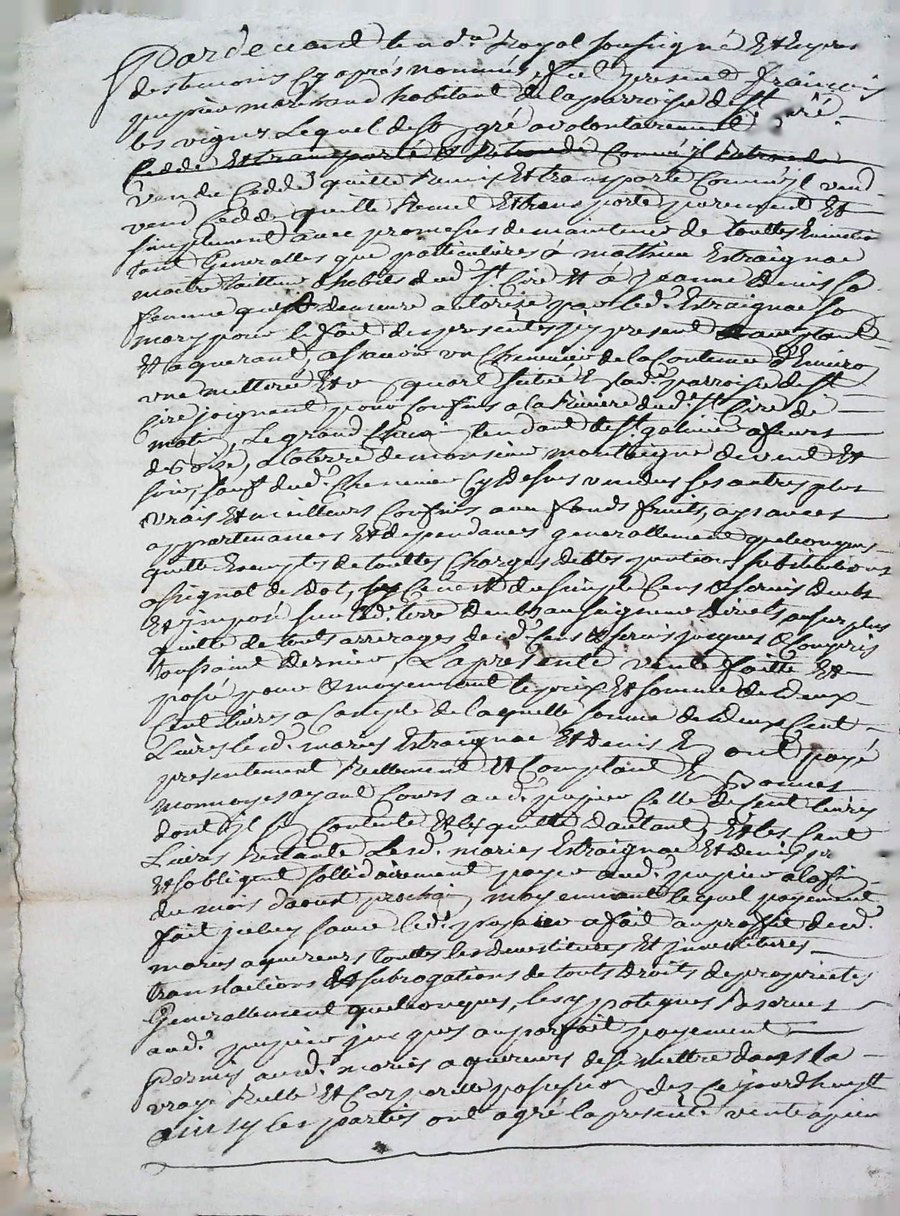 Pardevant le no.re Royal soussigné Et en pnce
des temoins Cy après nommés, fut present François
pupier marchand habitant de la parroisse de St
les vignes Lequel de so gré a volontairement
Ceddé Et transporté Comm'jl
vendu Ceddé quitte Remis Et transporté Comm'jl vend
vend Cedde quitte Remet Et transporte purement Et
simplement avec promesses de maintenir de touttes Evictio
tant Generalles que particulieres à mathieu Extraignac
maitre tailleur d'habits dud. St. Cire Et à Jeanne Denis sa
femme qui demeure autorisé par led. Extraignac so
mary pour le fait des presentes jcy present
Et aquerant, assavoir un Chenevier de la Contenue d'Enviro
une metterée Et un quart situé E lad. parroisse de St
Cire joignant pour Confins a la Riviere dud. St. Cire de
matin, Le grand Chemi tendant de St. galmier a feurs
de bize, a la terre de monsieur montaigne de vent Et
soir, sauf dud. Chenevier Cy dessus vendu ses autres plus
vrais Et meilleurs Confins aux fonds fruits, aysances
appartenances Et dependances generallement quelconques
quitte Exempts de touttes Charges debtes pentions substitutions
assignat de Dot, Cens Et du simple Cens & servis dubt
Et jmposé sur lad. terre dubt au seigneur direct, au surplus
quitte de touts arrerages dud. Cens & servis jusques & Compris
toussaint dernier, La présente vente faitte Et
passé pour & moyennant le prix Et somme de Deux
Cent livres a Compte de laquelle somme de Deux Cent
Livres lesd. mariés Extraignac Et Denis E ont payé
presentement Reellement Et Comptant E bonnes
monnoyes ayant Cours aud. pupier Celle de Cent livres
dont jl se Contente Et les quitte d'autant, Et les Cent
Livres Restante Lesd. mariés Extraignac Et Denis
Et s'obligent sollidairement payer aud. pupier a la fi
du mois d'aoust prochai, moyennant lequel payement
fait jceluy led. pupier a fait au proffit desd.
mariés aquereurs touttes les demestitures Et jnvestitures
translactions & subrogations de touts droits de proprietes
Generallement quelconques, les ypoteques Reserves
aud. pupier jusques au parfait payement
Permis auxd. mariés aquereurs de se mettre dans la
vraye Reelle Et Corporelle possession des Ce jourdhuy
ainsy les parties ont agré la présente vente a pien